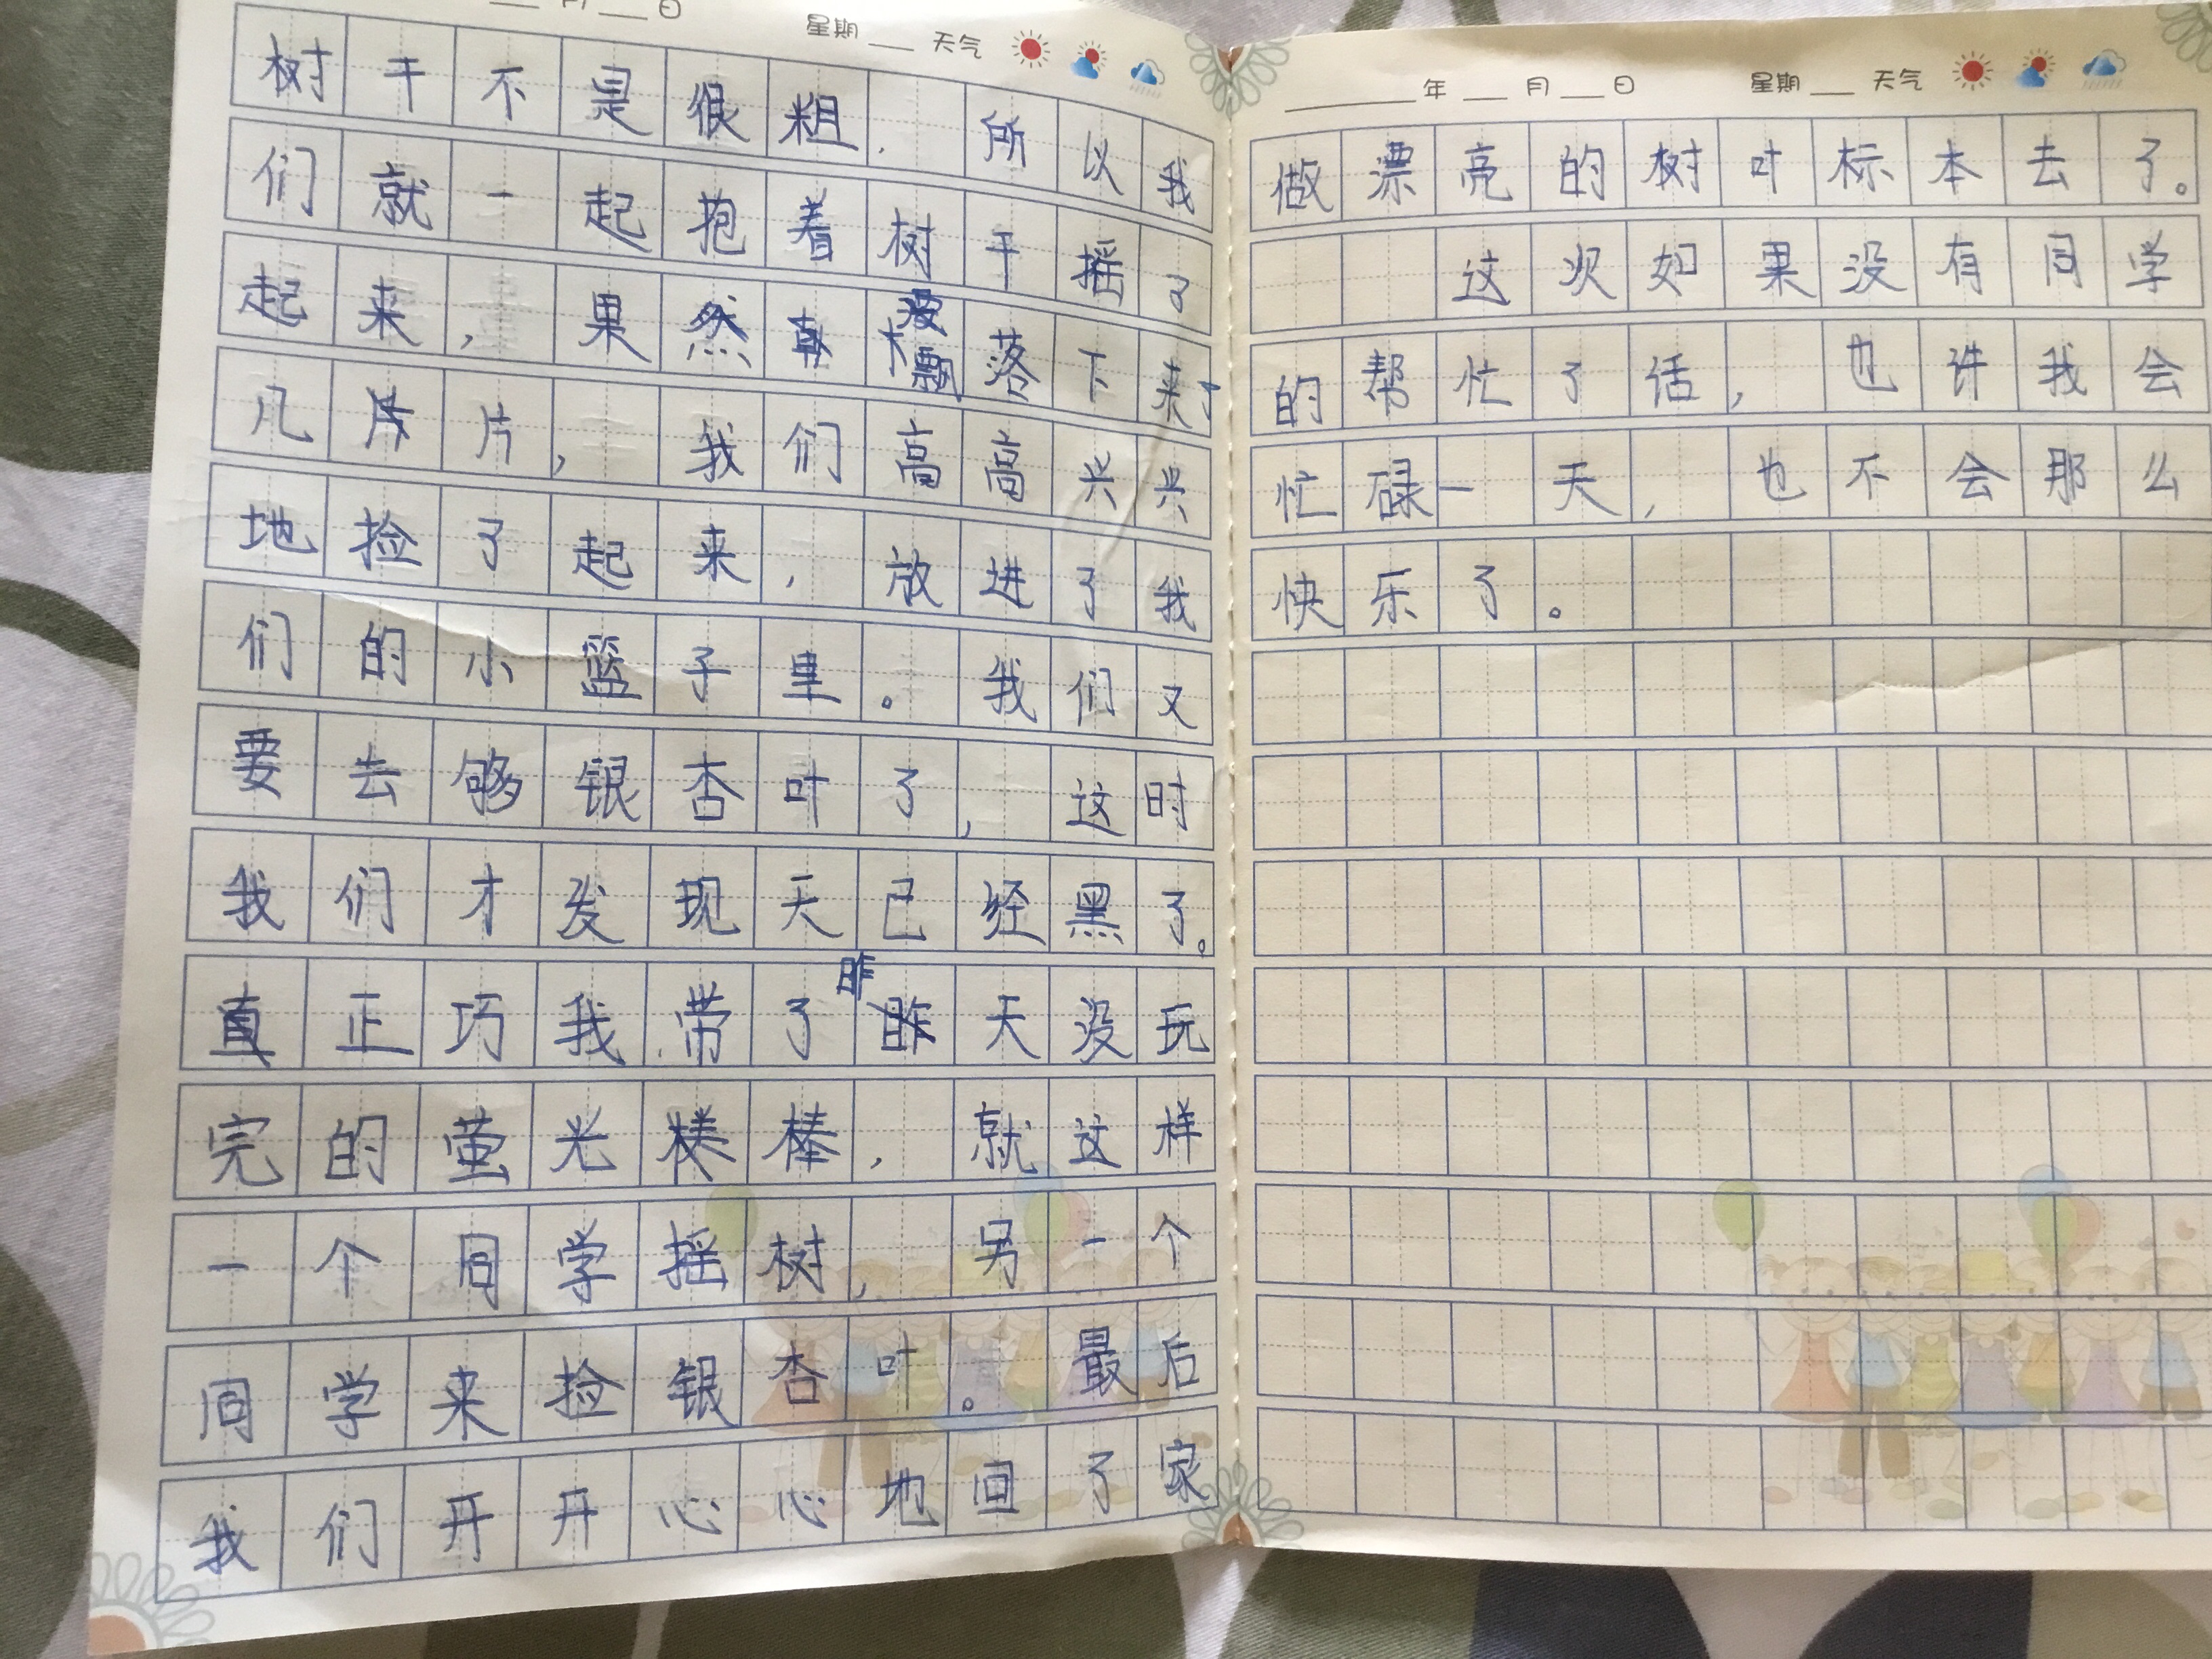 月 日 星期 天气
树干不是很粗，所以我
们就一起抱着树干摇了
起来，果然真被飘落下来了
几片片，我们高高兴兴
地捡了起来，放进了我
们的小篮子里。我们又
要去够银杏叶了，这时
我们才发现天已经黑了。
真正巧我带了昨天没玩
完的萤光棒，就这样
一个同学摇树，另一个
同学来捡银杏叶。最后
我们开开心心地回了家
年 月 日 星期 天气
做漂亮的树叶标本去了。
这次如果没有同学
的帮忙了话，也许我会
忙碌一天，也不会那么
快乐了。